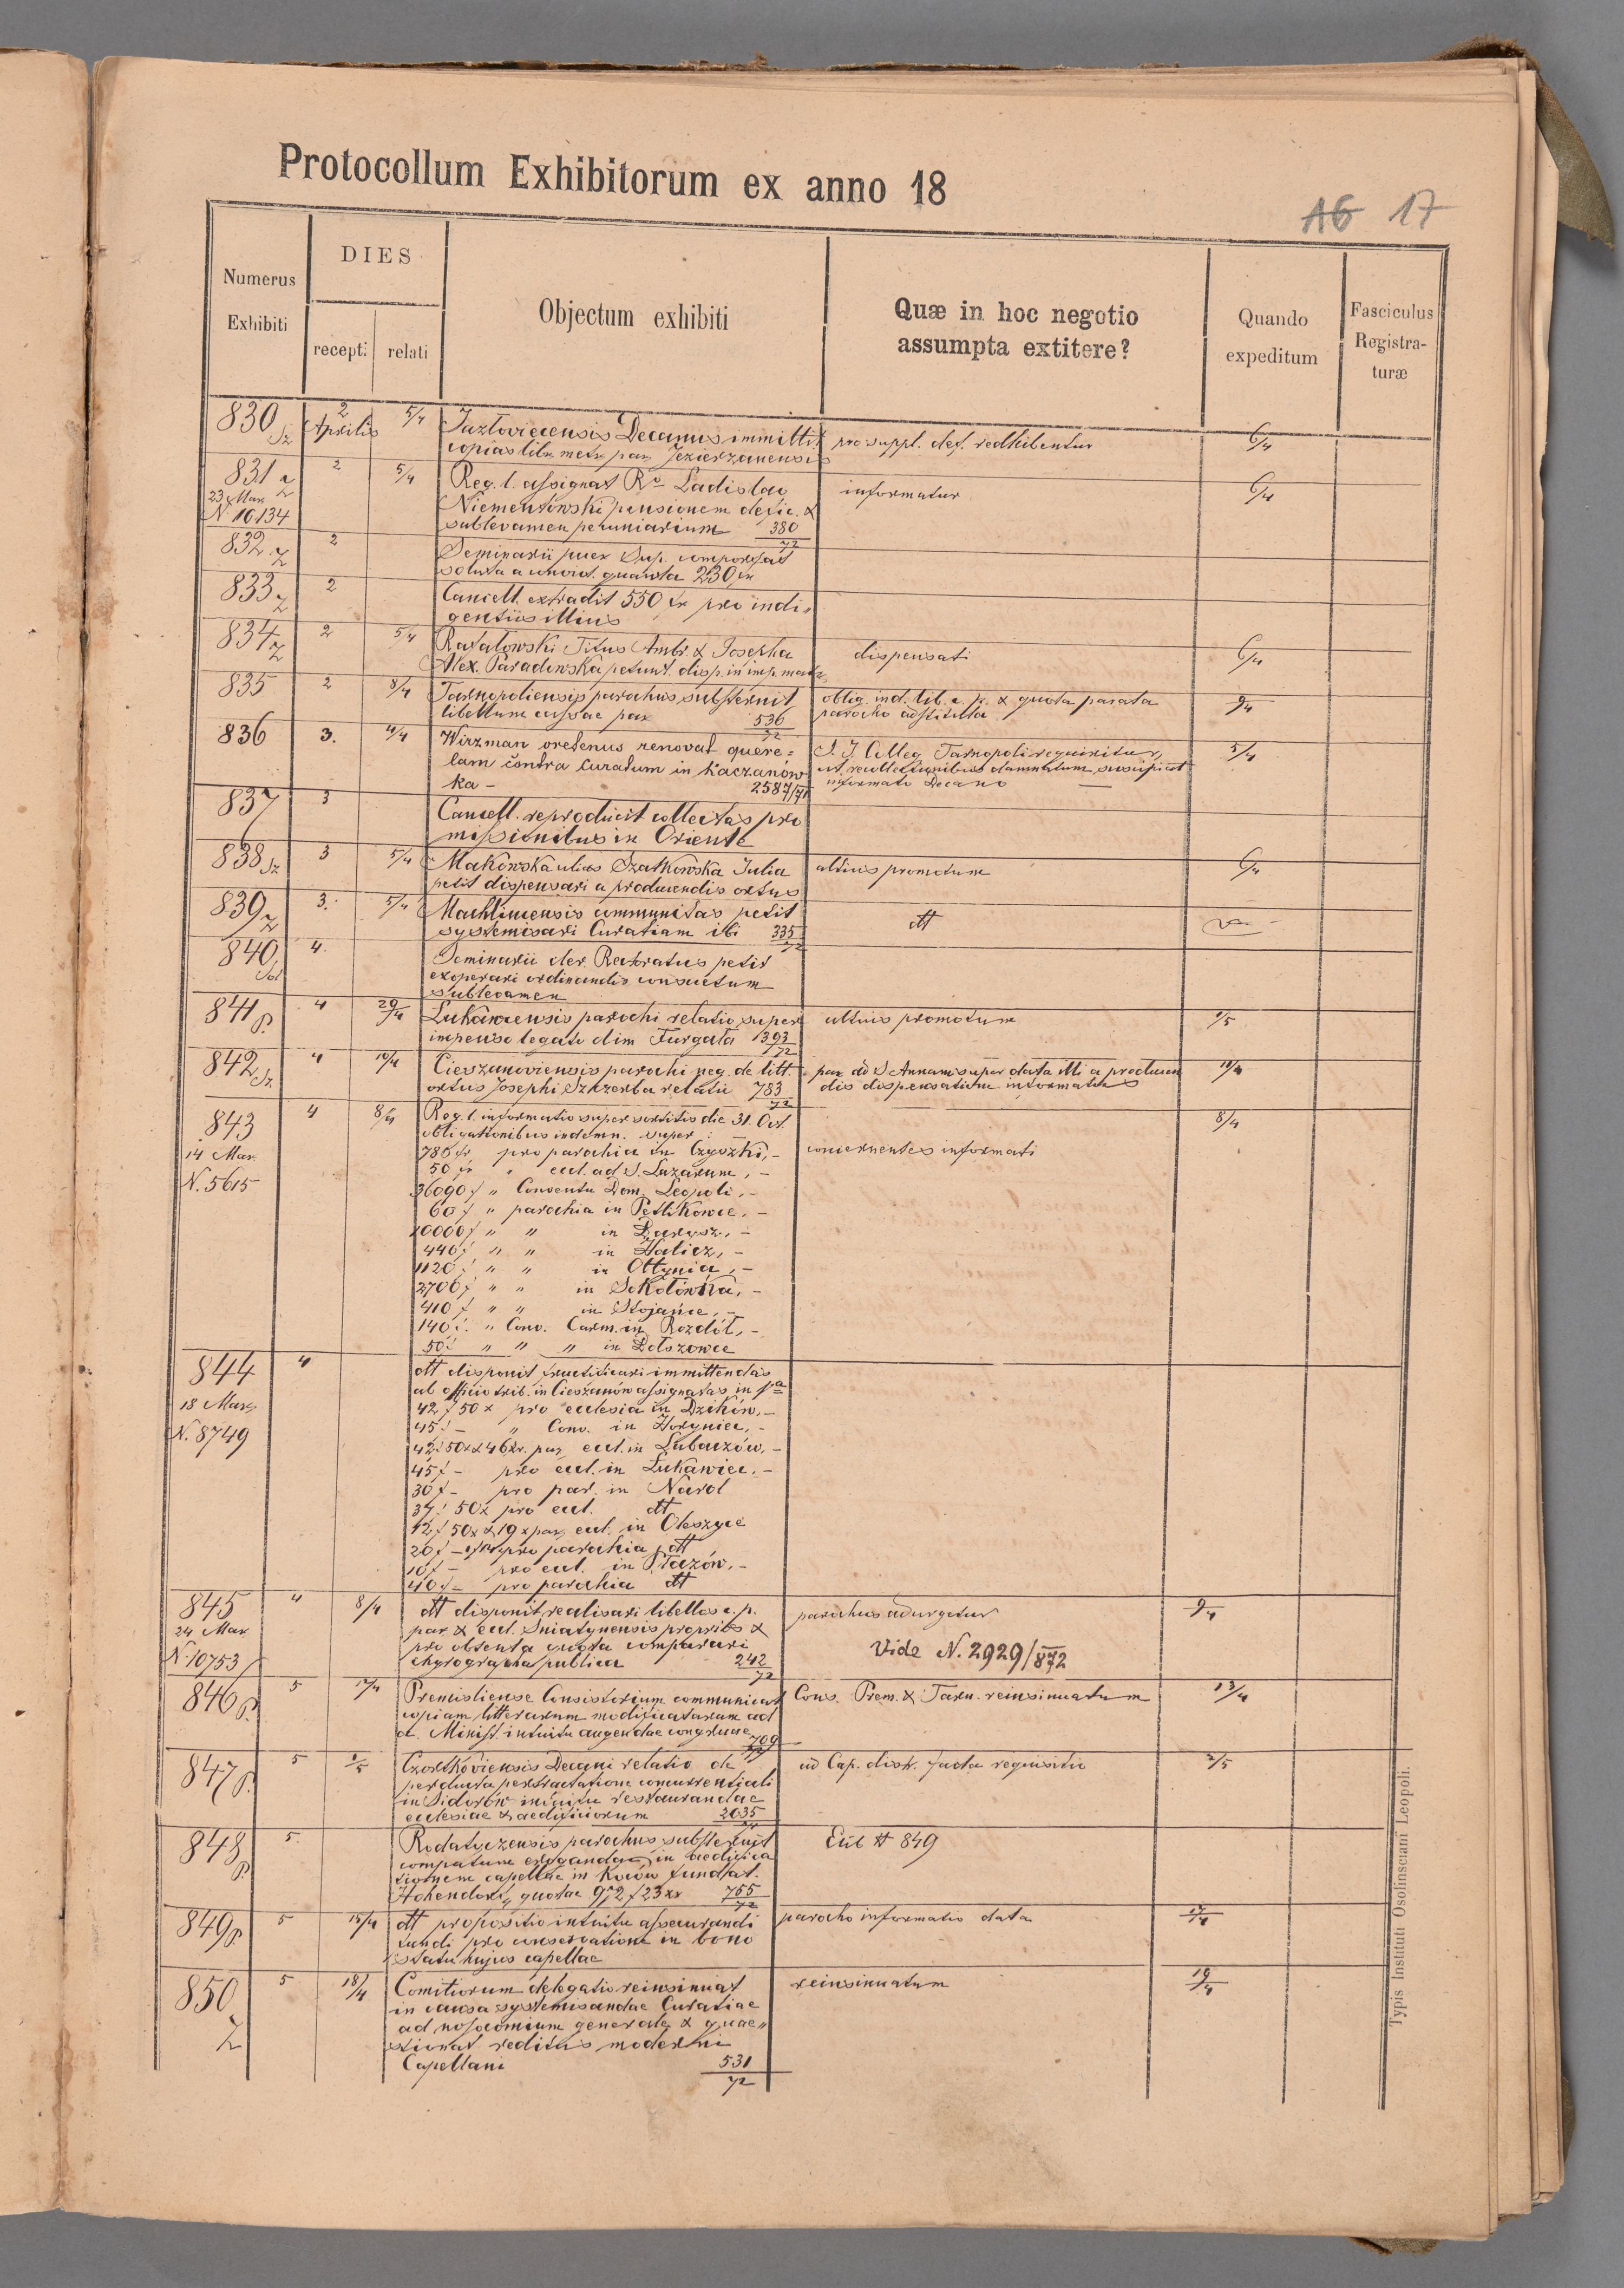 Protocollum Exhibitorum ex anno 18
17
Numerus Exhibiti
DIES
recepti
relati
Objectum exhibiti
Quæ in hoc negotio assumpta extitere?
Quando expeditum
Fasciculus Registra-
turæ
830 2 Aprilis 5/4 Jazłoviecensis Decanus immittit pro suppl. def. redhibentur 6/4
copias libr. metr. par. Jezierzanensis
831 2 5/4 Reg. l. assignat Rdo Ladislao informatur 6/4
23 Mar. Niementowski pensionem defic. &
N 10134 sublevamen pecuniarium 380/72
832 2 Seminarii puer. Sup. comportat
soluta a convict. quarta 230 fr
833 2 Cancell. extradit 550 fr pro indi„
gentiis illius
834 2 5/4 Ratałowski Titus Ambr. & Josepha dispensati 6/4
Alex. Paradowska petunt disp. in imp. matr.
835 2 8/4 Tarnopoliensis parochus substernit oblig. ind. lib. c. p. & quota parata 9/4
libellum cassae par. 536/72 parocho restituta
836 3. 4/4 Wirzman oretenus renovat quere= S. J. Colleg Tarnopoli requiritur, 5/4
lam contra Curatum in Kaczanów ut recollectionibus damnatum suscipiat
ka - 2587/71 informato Decano
837 3 Cancell. reproducit collectas pro
missionibus in Oriente
838 3 5/4 Makowska alias Szatkowska Julia altius promotum 6/4
petit dispensari a producendis ortus
839 3. 5/4 Machliniensis communitas petit dtt
systemisari Curatiam ibi 335/72
840 4. Seminarii cler. Rectoratus petit
exoperari ordinandis consuetum
sublevamen
841 4 29/4 Lukawcensis parochi relatio super altius promotum 1/5
impenso legato dim Furgata 1393/72
842 4 10/4 Cieszanoviensis parochi neg. de litt. par. ad S Annam super data illi a producen 10/4
ortus Josephi Szkzerba relatio 783/72 dis dispensatione informatus
843 4 8/4 Reg. l. informatio super sortitis die 31. Oct. 8/4
obligationibus indemn. super:
14 Mar. 780 fr pro parochia in Czyszki, - concernentes informati
50 fr „ eccl. ad S. Lazarum, -
N. 5615 36090 f „ Conventu Dom. Leopoli, -
60 f „ parochia in Petlikowce, -
10000 f „ „ in Barysz, -
440 f „ „ in Halicz, -
1120 f „ „ in Ottynia, -
2700 f „ „ in Sokołówka, -
410 f „ „ in Stojańce, -
140 f. „ Conv. Carm. in Rozdół, -
50 f „ „ „ in Bołszowce
844 4 dtt disponit fructificari immittendas
ab officio trib. in Cieszanów assignatas in fa
18 Mar. 42 f 50 x pro ecclesia in Dzików, -
45 f - „ Conv. in Horyniec, -
N. 8749 42 f 50 x & 46 xr. par. eccl. in Lubaczów, -
45 f - pro eccl. in Łukawiec, -
30 f - pro par. in Narol
37 f 50 x pro eccl. dtt
12 f 50 x & 19 x par. eccl. in Oleszyce
20 f - pro parochia dtt
10 f - pro eccl. in Płazów, -
40 f - pro parochia dtt
845 4 8/4 dtt disponit realisari libellos c. p. parochus adurgetur 9/4
24 Mar. par. & eccl. Sniatynensis proprios &
pro obtenta quota comparari Vide N. 2929/872
N. 10753 chyrographa publica 242/72
846 5 17/4 Premisliense Consistorium communicat Cons. Prem. & Tarn. reinsinuatum 13/4
copiam litterarum modificatarum ad
Minist. intuitu augendae congruae 709
847 5 1/5 Czortkoviensis Decani relatio de ad Cap. distr. facta requisitio 2/5
perducta pertractatione concurrentiali
in Sidorów intuitu restaurandae
ecclesiae & aedificiorum 2035
848 5. Rodatyczensis parochus substernit Sub # 849
computum erogandae in aedifica
tionem capellae in Kocow fundat.
Hohendorf quotae 972 f 23 xr 755/72
849 5 15/4 dtt propositio intuitu assecurandi parocho informatio data 17/4
fundi pro conservatione in bono
statu hujus capellae
850 5 18/4 Comitiorum delegatio reinsinuat reinsinuatum 19/4
in causa systemisandae Curatiae
ad nosocomium generale & quae„
stionat reditus moderni
Capellani 531/72
Typis Instituti Ossoliniani Leopoli.